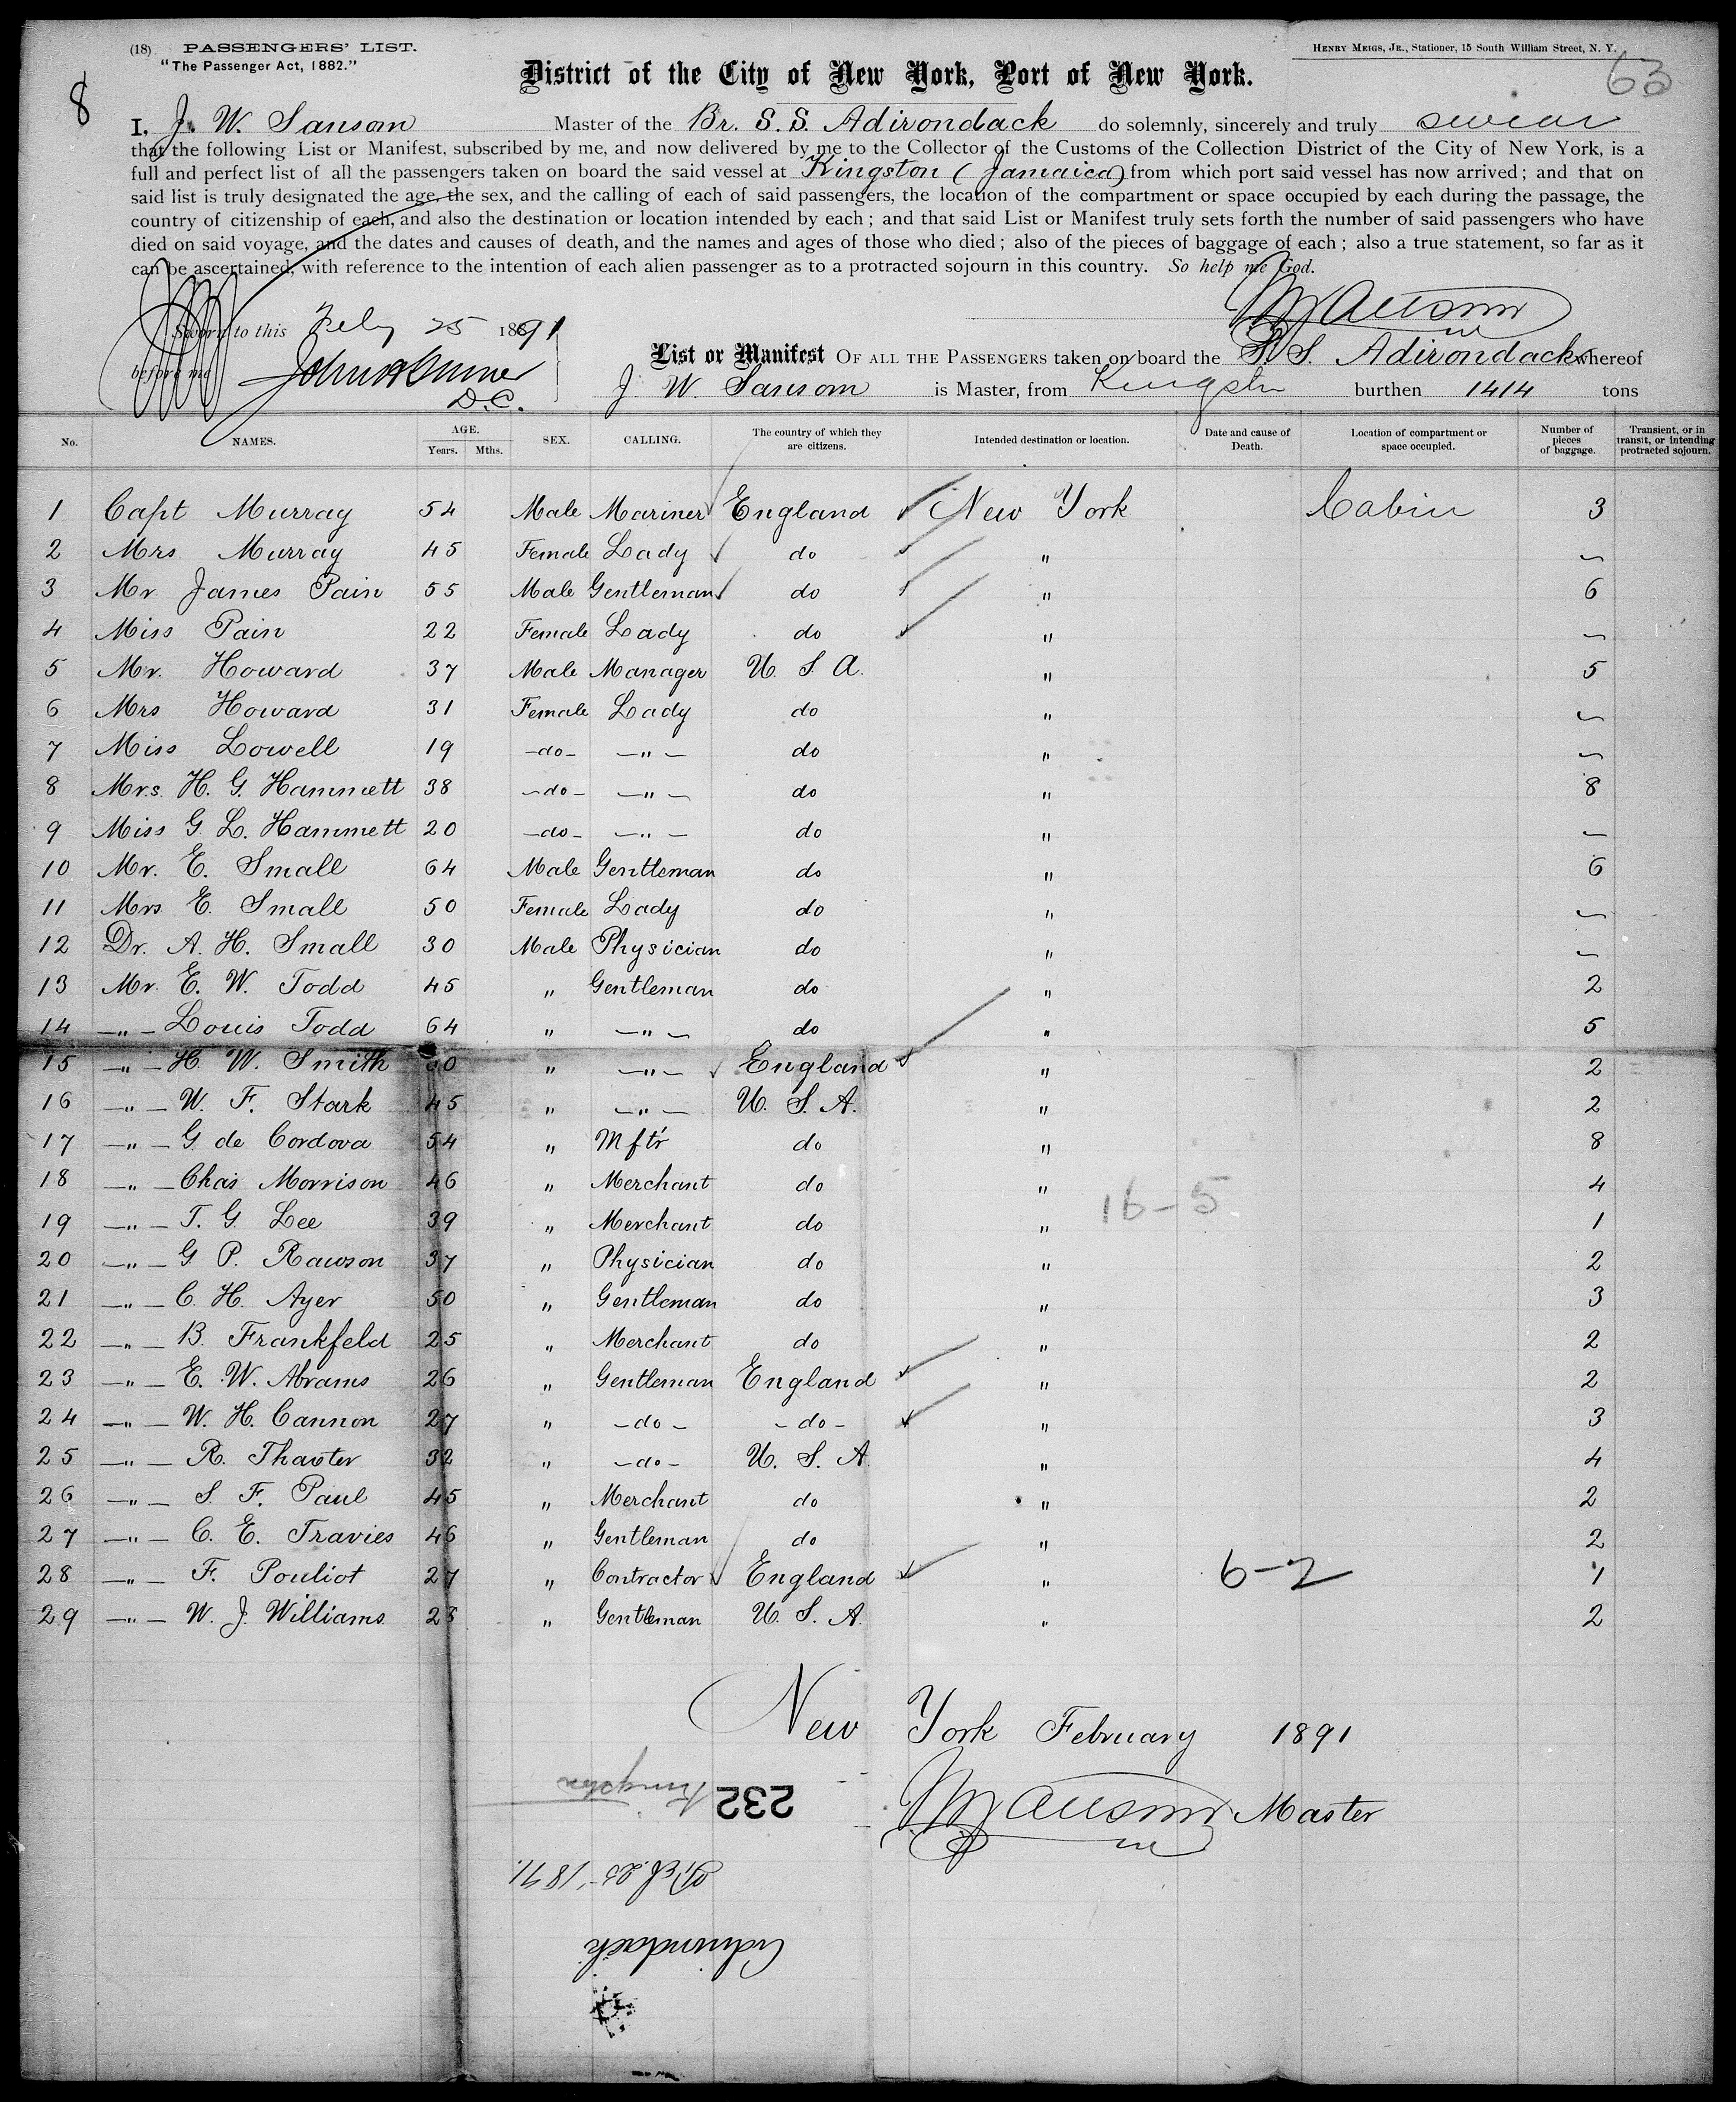 (18) PASSENGERS' LIST.
"The Passenger Act, 1882."
HENRY MEIGS, JR., Stationer, 15 South William Street, N. Y.
63
8
District of the City of New York, Port of New York.
I, J. W. Sansom Master of the Br. S. S. Adirondack do solemnly, sincerely and truly swear
that the following List or Manifest, subscribed by me, and now delivered by me to the Collector of the Customs of the Collection District of the City of New York, is a
full and perfect list of all the passengers taken on board the said vessel at Kingston (Jamaica) from which port said vessel has now arrived; and that on
said list is truly designated the age, the sex, and the calling of each of said passengers, the location of the compartment or space occupied by each during the passage, the
country of citizenship of each, and also the destination or location intended by each; and that said List or Manifest truly sets forth the number of said passengers who have
died on said voyage, and the dates and causes of death, and the names and ages of those who died; also of the pieces of baggage of each; also a true statement, so far as it
can be ascertained, with reference to the intention of each alien passenger as to a protracted sojourn in this country. So help me God.
JWSansom
Sworn to this Feby 25 1891
before me
D.C.
List or Manifest OF ALL THE PASSENGERS taken on board the S. S. Adirondack whereof
J W Sansom is Master, from Kingston burthen 1414 tons
No. NAMES. AGE. Years. Mths. SEX. CALLING. The country of which they are citizens. Intended destination or location. Date and cause of Death. Location of compartment or space occupied. Number of pieces of baggage. Transient, or in transit, or intending protracted sojourn.
1 Capt Murray 54 Male Mariner England New York Cabin 3
2 Mrs Murray 45 Female Lady do " ~
3 Mr James Pain 55 Male Gentleman do " 6
4 Miss Pain 22 Female Lady do " ~
5 Mr. Howard 37 Male Manager U. S. A. " 5
6 Mrs Howard 31 Female Lady do " ~
7 Miss Lowell 19 -do- -"- do " ~
8 Mrs. H. G. Hammett 38 -do- -"- do " 8
9 Miss G. L. Hammett 20 -do- -"- do " ~
10 Mr. E. Small 64 Male Gentleman do " 6
11 Mrs E. Small 50 Female Lady do " ~
12 Dr. A. H. Small 30 Male Physician do " ~
13 Mr. E. W. Todd 45 " Gentleman do " 2
14 -"- Louis Todd 64 " -"- do " 5
15 -"- H. W. Smith " -"- England " 2
16 -"- W. F. Stark 45 " -"- U. S. A. " 2
17 -"- G de Cordova 54 " Mftr do " 8
18 -"- Chas Morrison 46 " Merchant do " 4
16-5
19 -"- T. G. Lee 39 " Merchant do " 1
20 -"- G. P. Rawson 37 " Physician do " 2
21 -"- C. H. Ayer 50 " Gentleman do " 3
22 -"- B. Frankfeld 25 " Merchant do " 2
23 -"- E. W. Abrams 26 " Gentleman England " 2
24 -"- W. H. Cannon 27 " -do- -do- " 3
25 -"- R. Thaxter 32 " -do- U. S. A. " 4
26 -"- S. F. Paul 45 " Merchant do " 2
27 -"- C. E. Travies 46 " Gentleman do " 2
28 -"- F. Pouliot 27 " Contractor England " 6-2 1
29 -"- W. J. Williams " Gentleman U. S. A. " 2
New York February 1891
JWSansom Master
232
Kingston
Feb. 25, 1891.
Adirondack